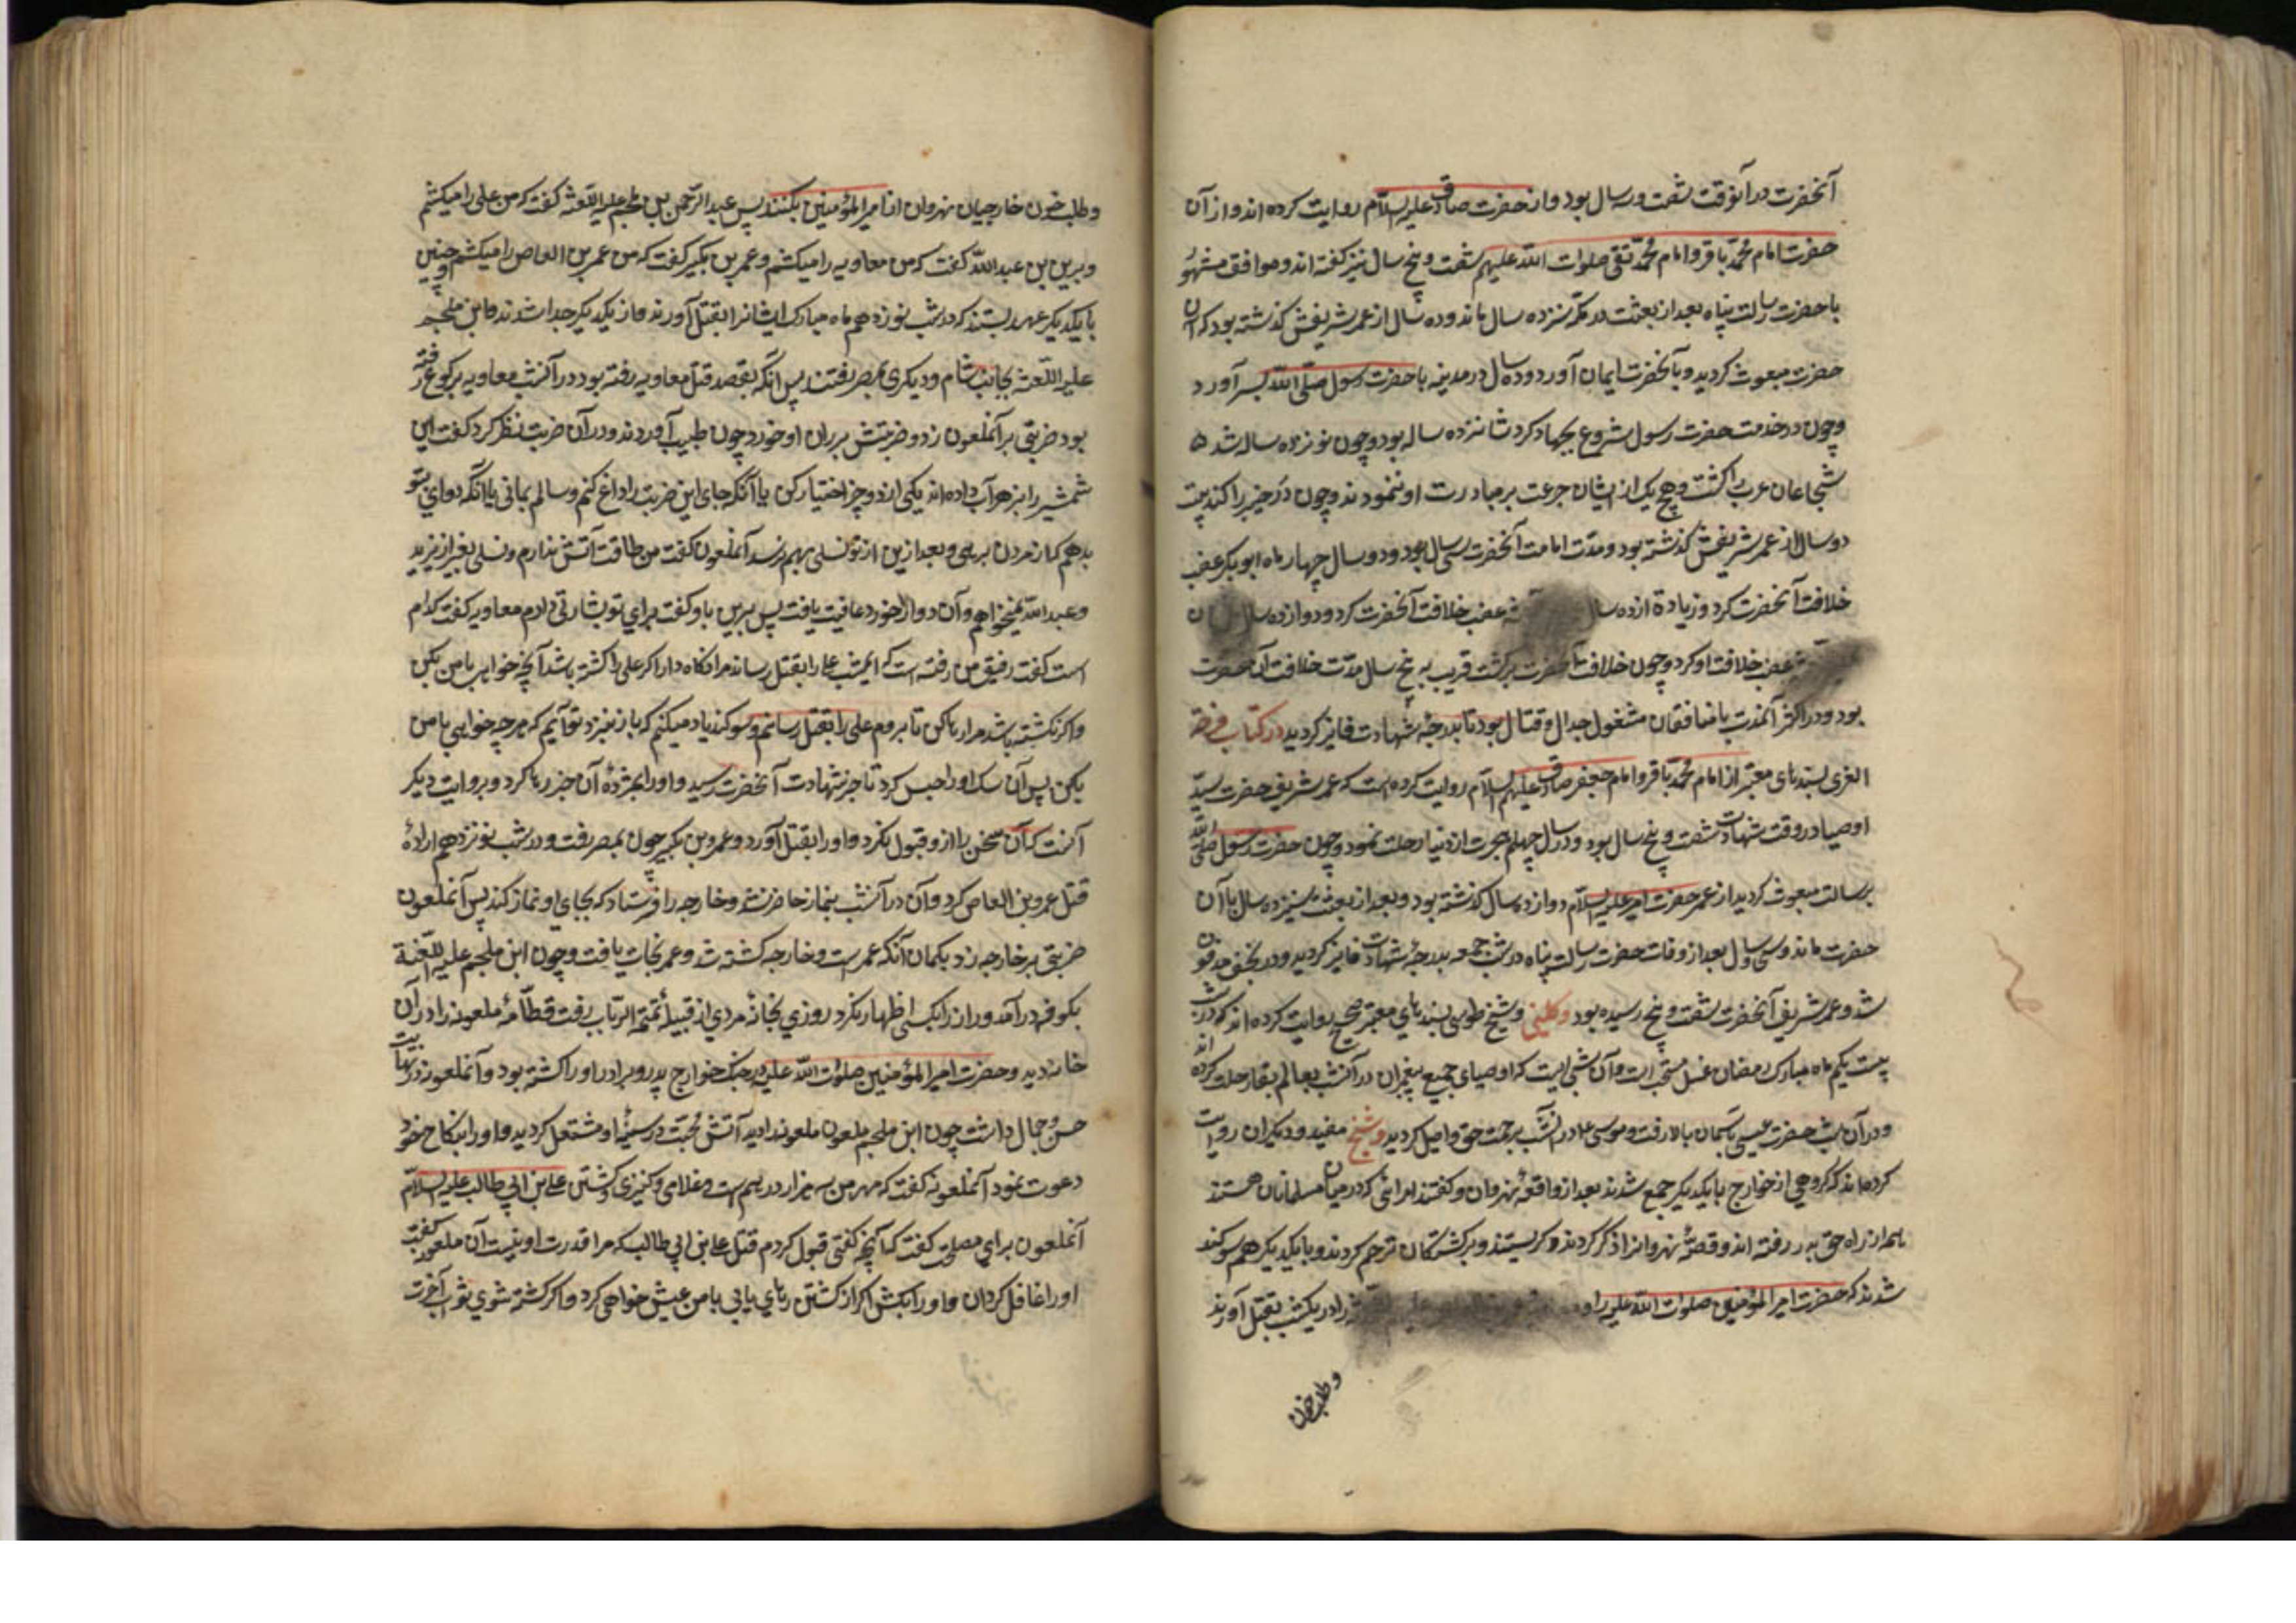 آنحضرت در آنوقت شصت و سه سال بود و از حضرت صادق علیه السلام روایت کرده اند و از آن
حضرت امام محمد باقر و امام محمد تقی صلوات الله علیهم شصت و پنج سال نیز گفته اند و موافق مشهور
با حضرت رسالت پناه بعد از بعثت در مکه سنزده سال ماند و ده سال از عمر شریفش گذشته بود که آن
حضرت مبعوث گردید و بآنحضرت ایمان آورد و ده سال در مدینه با حضرت رسول صلی الله بسر آورد
و چون در خدمت حضرت رسول شروع بجهاد کرد شانزده ساله بود و چون نوزده ساله شد
شجاعان عرب را کشت و هیچ یک از ایشان جرعت بر مبادرت او ننمودند و چون در خیبر را کند بیت
دو سال از عمر شریفش گذشته بود و مدت امامت آنحضرت سی سال بود و دو سال چهار ماه ابوبکر غصب
خلافت آنحضرت کرد و زیادة از ده سال غصب خلافت آنحضرت کرد و دوازده سال
غصب خلافت او کرد و چون خلافت بآنحضرت برگشت قریب به پنج سال مدت خلافت آن حضرت
بود و در اکثر آنمدت با منافقان مشغول جدال و قتال بود تا بدرجه شهادت فایز گردید در کتاب فرحة
الغری بسندهای معتبر از امام محمد باقر و امام جعفر صادق علیهم السلام روایت کرده است که عمر شریف حضرت سید
اوصیا در وقت شهادت شصت و پنج سال بود و در سال چهلم هجرت از دنیا رحلت نمود و چون حضرت رسول صلی الله
برسالت مبعوث گردید از عمر حضرت امیر علیه السلام دوازده سال گذشته بود و بعد از بعثت سیزده سال با آن
حضرت ماند و سی سال بعد از وفات حضرت رسالت پناه در شب جمعه بدرجه شهادت فایز گردید و در نجف مدفون
شد و عمر شریف آنحضرت بشصت و پنج رسیده بود و کلینی و شیخ طوسی بسندهای معتبر صحیح روایت کرده اند که در شب
بیست یکم ماه مبارک رمضان غسل مستحب است و آن شبی است که اوصیای جمیع پیغمبران در آنشب بعالم بقا رحلت کرده اند
و در آن شب حضرت عیسی بآسمان بالا رفت و موسی در آنشب برحمت حق واصل گردید و شیخ مفید و دیگران روایت
کرده اند که گروهی از خوارج با یکدیگر جمع شدند بعد از واقعه نهروان و گفتند امرائی که در میان مسلمانان هستند
همه از راه حق بدر رفته اند و قصه نهروانرا ذکر کردند و گریستند و بر کشتگان ترحم کردند و با یکدیگر هم سوگند
شدند که حضرت امیر المؤمنین صلوات الله علیه را و را در یکشب بقتل آورند
و طلب خون
و طلب خون خارجیان نهروان از امیر المؤمنین بکنند پس عبد الرحمن بن ملجم علیه اللعنه گفت که من علی را میکشم
و بریس بن عبد الله گفت که من معاویه را میکشم و عمر بن بکیر گفت که من عمر بن العاص را میکشم و چنین
با یکدیگر عهد بستند که در شب نوزدهم ماه مبارک ایشانرا بقتل آورند و از یکدیگر جدا شدند و ابن ملجم
علیه اللعنه بجانب شام و دیگری بمصر رفتند پس انکه بقصد قتل معاویه رفته بود در آنشب معاویه برکوع رفته
بود ضربتی بر آنملعون زد و ضربتش بر ران او خورد چون طبیب آوردند و در آن ضربت نظر کرد گفت این
شمشیر را بزهر آب داده اند یکی از دو چیز اختیار کن یا آنکه جای این ضربت را داغ کنم و سالم بمانی یا انکه دوای بتو
بدهم که از مردن برهی و بعد از این از تو نسلی بهم نرسد آنملعون گفت من طاقت آتش ندارم و نسلی بغیر از یزید
و عبد الله نمیخواهم و آن دوا را خورد عافیت یافت پس بریس باو گفت برای تو بشارتی دارم معاویه گفت کدام
است گفت رفیق من رفته است که امشب علی را بقتل رساند مرا نگاه دار اگر علی را کشته باشد آنچه خواهی با من بکن
و اگر نکشته باشد مرا رها کن تا بروم علی را بقتل رسانم و سوگند یاد میکنم که باز بنزد تو آیم که هر چه خواهی با من
بکن پس آن سک او را حبس کرد تا خبر شهادت آنحضرت رسید و او را بمژده آن خبر رها کرد و بروایت دیگر
آنست که آن سخن را از او قبول نکرد و او را بقتل آورد و عمرو بن بکیر چون بمصر رفت و در شب نوزدهم اراده
قتل عمرو بن العاص کرد و آن در آنشب بنماز حاضر نشد و خارجه را فرستاد که بجای او نماز کند پس آنملعون
ضربتی بر خارجه زد بگمان آنکه عمر است و خارجه کشته شد و عمر نجات یافت و چون ابن ملجم علیه اللعنة
بکوفه در آمد و راز را بکسی اظهار نکرد روزی بخانه مردی از قبیله تیم الرباب رفت قطامه ملعونه را در آن
خانه دید و حضرت امیر المؤمنین صلوات الله علیه در جنک خوارج پدر و برادر او را کشته بود و آنملعونه در نهایت
حسن و جمال داشت چون ابن ملجم ملعون ملعونه را دید آتش محبت در سینه او مشتعل گردید و او را بنکاح خود
دعوت نمود آنملعونه گفت که مهر من سه هزار درهم است و غلامی و کنیزی و کشتن علی بن ابی طالب علیه السلام
آنملعون برای مصلحت گفت که آنچه گفتی قبول کردم قتل علی بن ابی طالب که مرا قدرت او نیست آن ملعونه گفت
او را غافل گردان و او را بکش اگر از کشتن رهای یابی با من عیش خواهی کرد و اگر کشته شوی ثواب آخرت